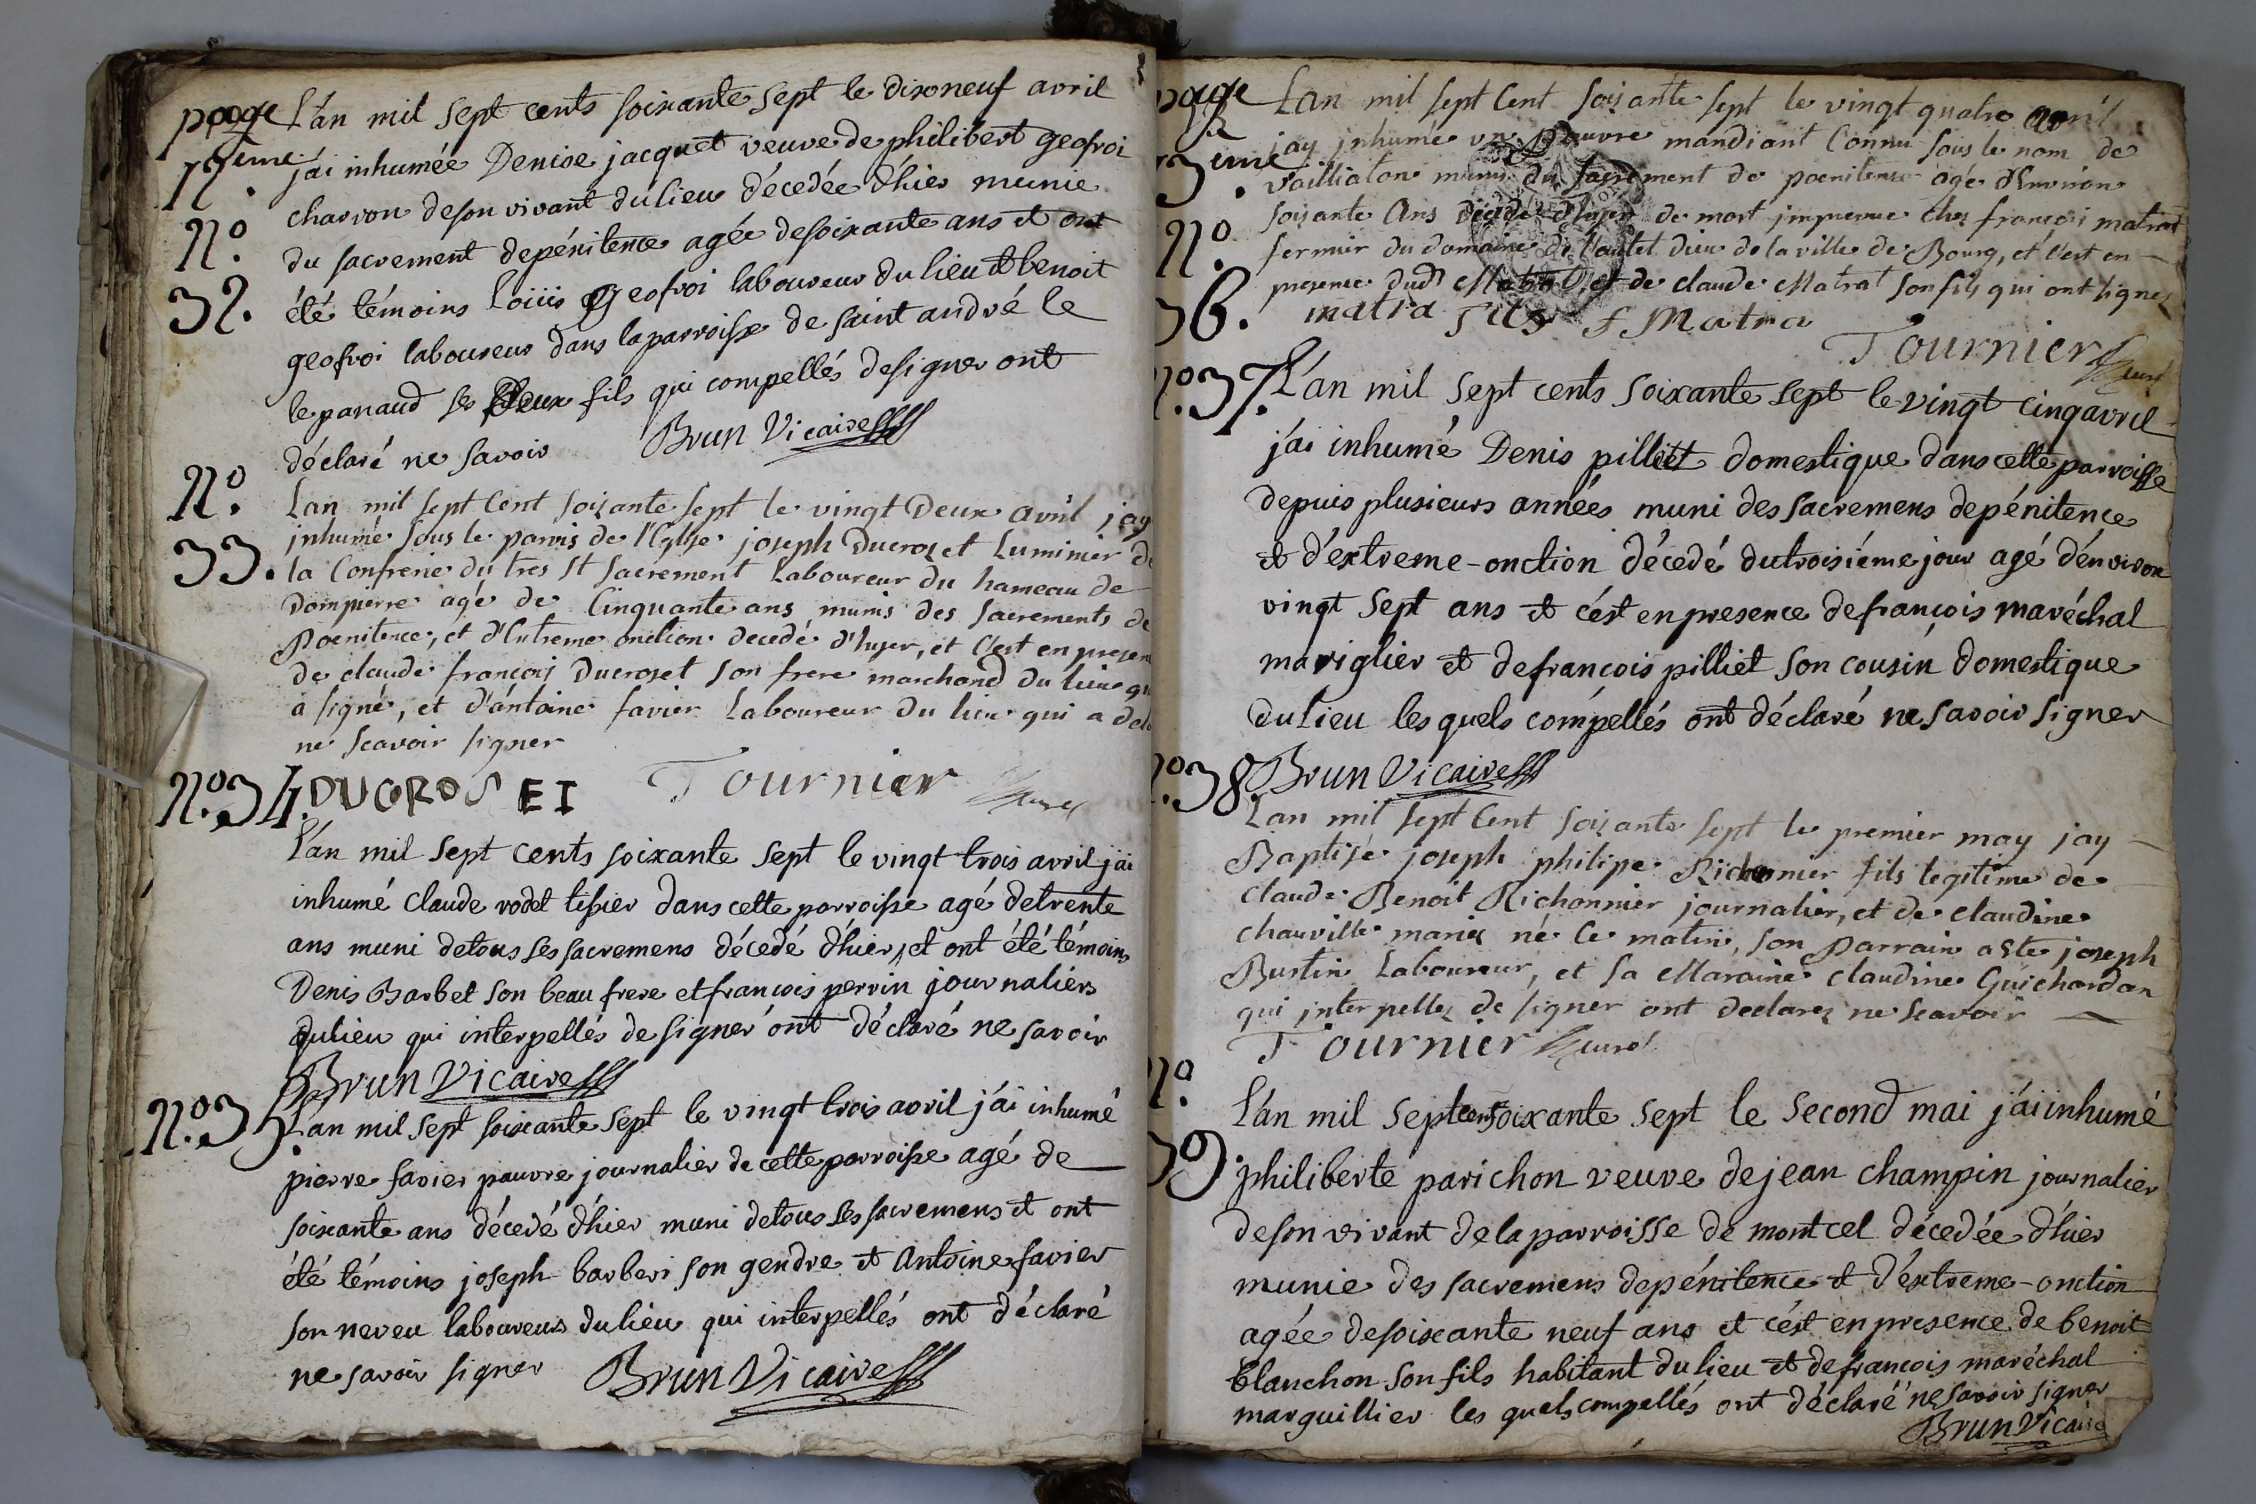 page
12eme
n.o
32.
L'an mil sept cents soixante sept le dixneuf avril
j'ai inhumée Denise jacquet veuve de philibert geofroi
charron de son vivant du lieu décedée d'hier munie
du sacrement de pénitence agée de soixante ans et ont
été témoins Loüis geofroi laboureur du lieu et benoit
geofroi laboureur dans la parroisse de saint andré le
le panaud ses deux fils qui compellés de signer ont
déclaré ne savoir Brun Vicaire
n.o
33.
Lan mil sept Cent soixante sept le vingt Deux avril jay
inhumé sous le parvis de l'Eglise joseph Ducroset Luminier de
la Confrerie du tres St sacrement Laboureur du hameau de
Dompierre agé de Cinquante ans munis des sacrements de
Poenitence, et d'Extreme onction decedé d'hyer, et C'est en presen
de claude françois Ducroset son frere marchand du lieu qu
a signé, et d'antoine favier Laboureur du lieu qui a decl
ne scavoir signer
n.o 34. DUCROSET Tournier Curé
L'an mil sept cents soixante sept le vingt trois avril j'ai
inhumé claude rodet tissier dans cette parroisse agé de trente
ans muni de tous ses sacremens décedé d'hier, et ont été témoins
Denis Barbet son beau frere et françois perrin journaliers
du lieu qui interpellés de signer ont déclaré ne savoir
Brun Vicaire
n.o 35. L'an mil sept soixante sept le vingt trois avril j'ai inhumé
pierre favier pauvre journalier de cette parroisse agé de
soixante ans décedé d'hier muni de tous ses sacremens et ont
été témoins joseph barberi son gendre et Antoine favier
son neveu laboureurs du lieu qui interpellés ont déclaré
ne savoir signer Brun Vicaire
page
13eme
n.o
36.
Lan mil sept Cent soixante sept le vingt quatre avril
jay inhumé un Pauvre mandiant Connu sous le nom de
vailliaton munis du sacrement de poenitence agé d'Environ
soixante Ans décédé d'hyer de mort imprevue chez françois matrat
fermier du domaine de l'hautel dieu de la ville de Bourg, et C'est en
presence dudt Matrat et de claude Matrat son fils qui ont signez
matra fils f Matra
Tournier Curé
n.o 37. L'an mil sept cents soixante sept le vingt cinq avril
j'ai inhumé Denis pilliet domestique dans cette parroisse
depuis plusieurs années muni des sacremens de pénitence
et d'extreme-onction décedé du troisiéme jour agé d'environ
vingt sept ans et c'est en presence de françois maréchal
mariglier et de françois pilliet son cousin domestique
du lieu les quels compellés ont déclaré ne savoir signer
n.o 38. Brun Vicaire
Lan mil sept Cent soixante sept le premier may jay
Baptisé joseph philipe Richonnier fils legitime de
claude Benoit Richonnier journalier, et de claudine
chauville mariez né ce matin, son Parrain a été joseph
Burtin Laboureur, et sa Maraine claudine Guichardan
qui interpellez de signer ont declarez ne scavoir
Tournier Curé
n.o
39.
L'an mil sept cent soixante sept le second mai j'ai inhumé
philiberte parichon veuve de jean champin journalier
de son vivant de la parroisse de montcel décedée d'hier
munie des sacremens de pénitence et d'extreme-onction
agée de soixante neuf ans et c'est en presence de benoit
blanchon son fils habitant du lieu et de françois maréchal
marguillier les quels compellés ont déclaré ne savoir signer
Brun Vicaire